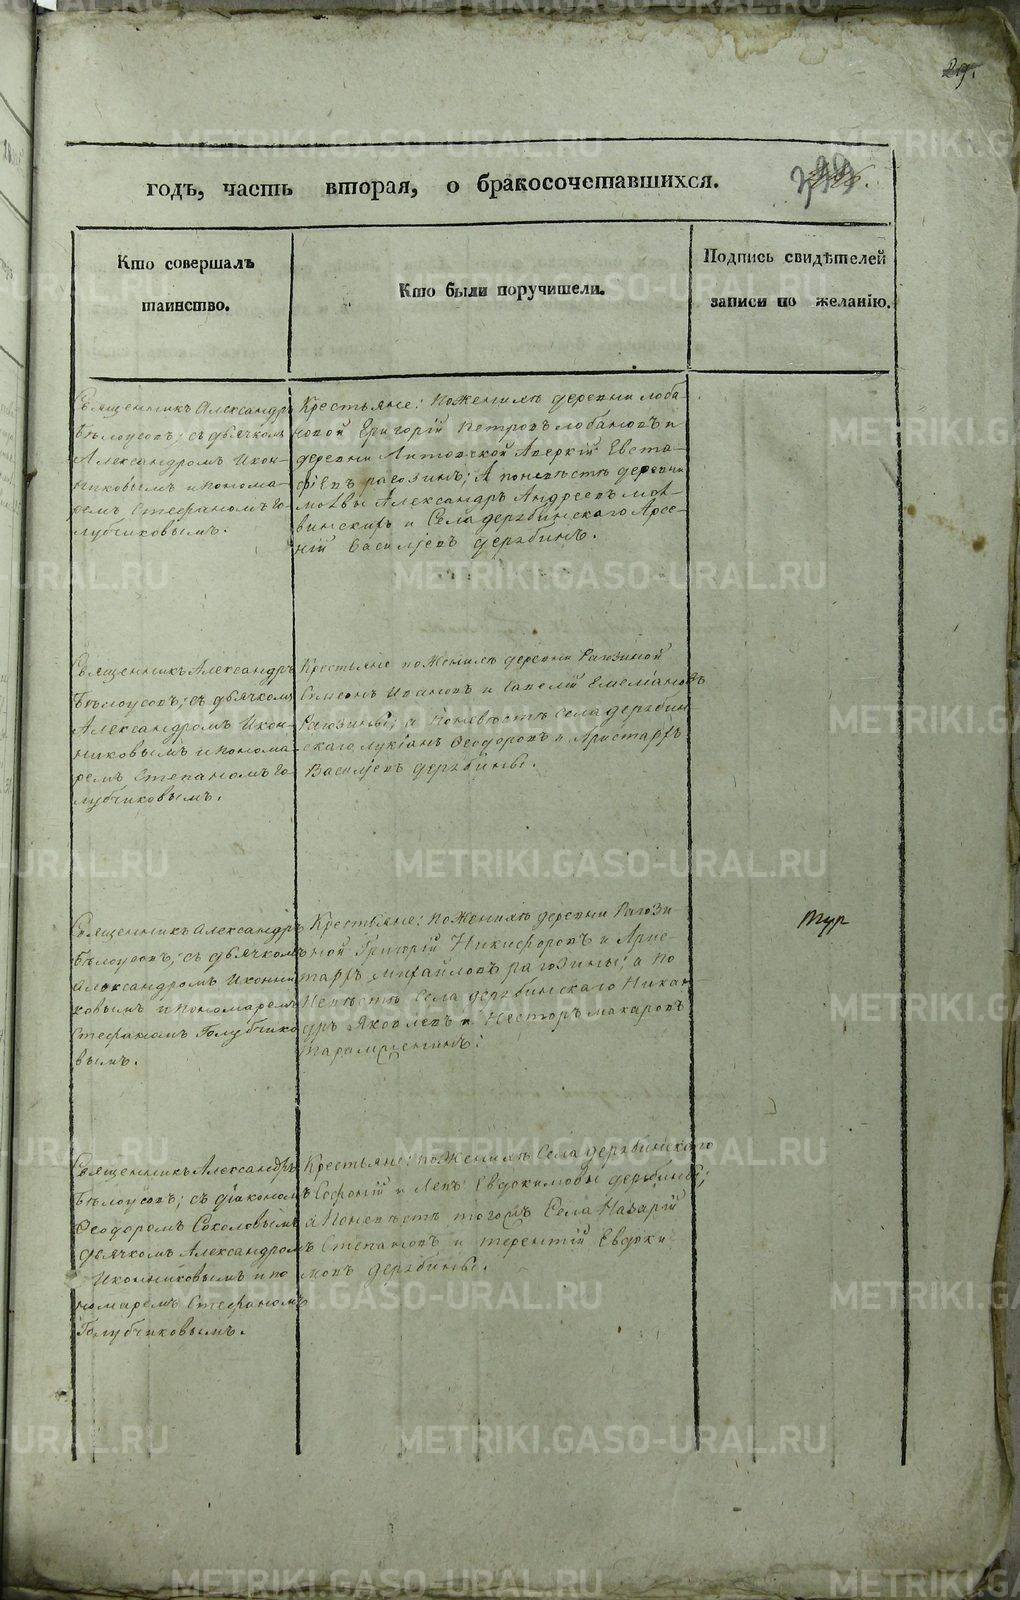 29.
годъ, часть вторая, о бракосочетавшихся.
Кто совершалъ
таинство.
Кто были поручители.
Подпись свидѣтелей
записи по желанію.
Священникъ Александръ
Бѣлоусовъ; съ дьячкомъ
Александромъ Икон-
никовымъ и понома-
ремъ Стефаномъ Го-
лубчиковымъ.
Крестьяне: по женихѣ деревни лоба-
новой Григорій Петровъ лобановъ и
деревни Липовской Аверкій Евста-
фіевъ рагозинъ; А по невѣстѣ деревни
Александръ Андреевъ
и Села дерябинскаго Арсе-
ній Васильевъ дерябинъ.
Священникъ Александръ
Бѣлоусовъ; съ дьячкомъ
Александромъ Икон-
никовымъ и понома-
ремъ Степаномъ Го-
лубчиковымъ.
Крестьяне по женихѣ деревни Рагозиной
Симеонъ Ивановъ и Савелій Емеліановъ
Рагозины; а по невѣстѣ Села дерябин
скаго лукіанъ Ѳеодоровъ и Аристархъ
Васильевъ дерябины.
Священникъ Александръ
Бѣлоусовъ; съ дьячкомъ
Александромъ Иконни
ковымъ и пономаремъ
Стефаномъ Голубчико
вымъ.
Крестьяне: по женихѣ деревни Рагози-
ной Григорій Никифоровъ и Арис-
тархъ михайловъ рагозины; а по
Невѣстѣ Села дерябинскаго Никан-
дръ Яковлевъ и Несторъ макаровъ
Тур
Священникъ Александръ
Бѣлоусовъ; съ діакономъ
Ѳеодоромъ Соколовымъ
дьячкомъ Александромъ
Иконниковымъ и по
номаремъ Стефаномъ
Голубчиковымъ.
Крестьяне: по женихѣ Села дерябинскаго
Софоній и Левъ Евдокимовы дерябины;
а по невѣстѣ тогожъ Села Назарій
Степановъ и терентій Евдоки
мовъ дерябины.
METRIKI.GASO-URAL.RU